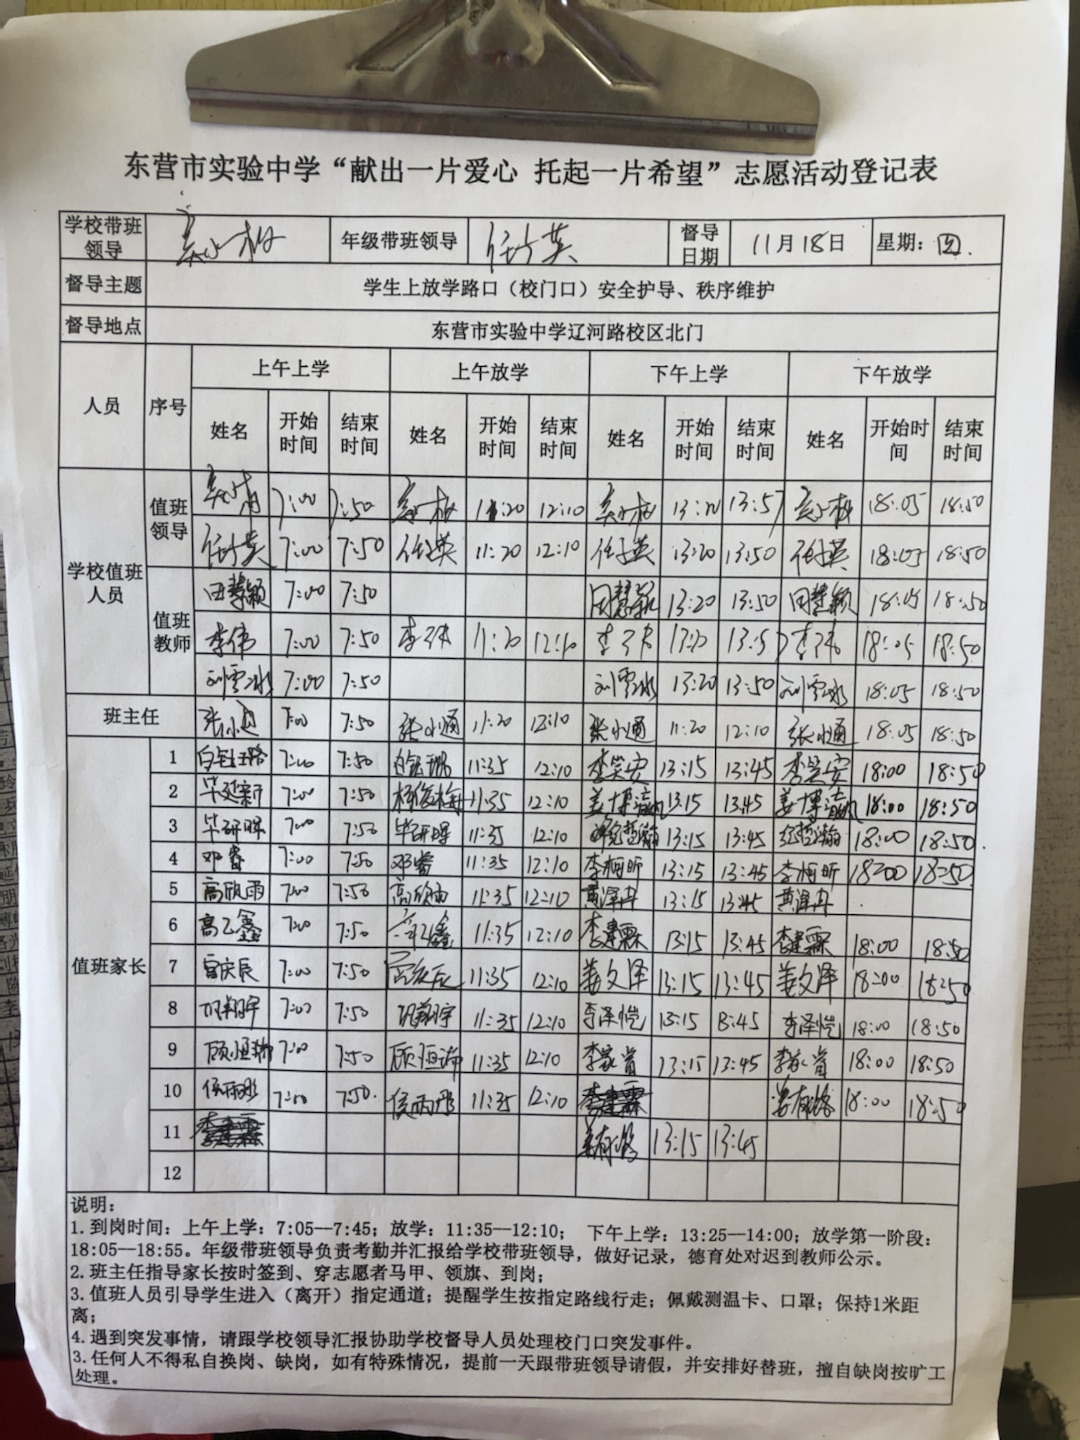 东营市实验中学“献出一片爱心 托起一片希望”志愿活动登记表
学校带班领导 年级带班领导 督导日期 11月18日 星期：四.
督导主题 学生上放学路口（校门口）安全护导、秩序维护
督导地点 东营市实验中学辽河路校区北门
人员 序号 上午上学 上午放学 下午上学 下午放学
姓名 开始时间 结束时间 姓名 开始时间 结束时间 姓名 开始时间 结束时间 姓名 开始时间 结束时间
学校值班人员
值班领导 7:00 7:50 11:20 12:10 13:20 13:5 18:05 18:50
7:00 7:50 11:20 12:10 13:20 13:50 18:05 18:50
值班教师 田慧颖 7:00 7:50 田慧颖 13:20 13:50 田慧颖 18:05 18:50
李伟 7:00 7:50 李伟 11:20 12:10 李伟 13:5 李伟 18:05 18:50
刘雪冰 7:00 7:50 刘雪冰 13:20 13:50 刘雪冰 18:05 18:50
班主任 张小通 7:00 7:50 张小通 11:20 12:10 张小通 11:20 12:10 张小通 18:05 18:50
值班家长
1 7:00 7:50 11:35 12:10 李笑安 13:15 13:45 李笑安 18:00 18:50
2 毕延新 7:00 7:50 杨俊梅 11:35 12:10 13:15 13:45 18:00 18:50
3 7:00 7:50 11:35 12:10 13:15 13:45 18:00 18:50.
4 邓睿 7:00 7:50 邓睿 11:35 12:10 李柯昕 13:15 13:45 李柯昕 18:00 18:50
5 高欣雨 7:00 7:50 高欣雨 11:35 12:10 黄泽冉 13:15 13:45 黄泽冉
6 高乙鑫 7:00 7:50 11:35 12:10 李建霖 13:15 13:45 李建霖 18:00 18:50
7 宫庆辰 7:00 7:50 宫庆辰 11:35 12:10 姜文泽 13:15 13:45 姜文泽 18:00 18:50
8 7:00 7:50 11:35 12:10 李泽恺 13:15 8:45 李泽恺 18:00 18:50
9 顾恒瑞 7:00 7:50 顾恒瑞 11:35 12:10 13:15 13:45 18:00 18:50
10 侯雨彤 7:00 7:50. 侯雨彤 11:35 12:10 18:00 18:50
11 13:15 13:45
12
说明：
1. 到岗时间：上午上学：7:05--7:45；放学：11:35--12:10； 下午上学：13:25--14:00；放学第一阶段：
18:05--18:55。年级带班领导负责考勤并汇报给学校带班领导，做好记录，德育处对迟到教师公示。
2. 班主任指导家长按时签到、穿志愿者马甲、领旗、到岗；
3. 值班人员引导学生进入（离开）指定通道；提醒学生按指定路线行走；佩戴测温卡、口罩；保持1米距
离；
4. 遇到突发事情，请跟学校领导汇报协助学校督导人员处理校门口突发事件。
3. 任何人不得私自换岗、缺岗，如有特殊情况，提前一天跟带班领导请假，并安排好替班，擅自缺岗按旷工
处理。